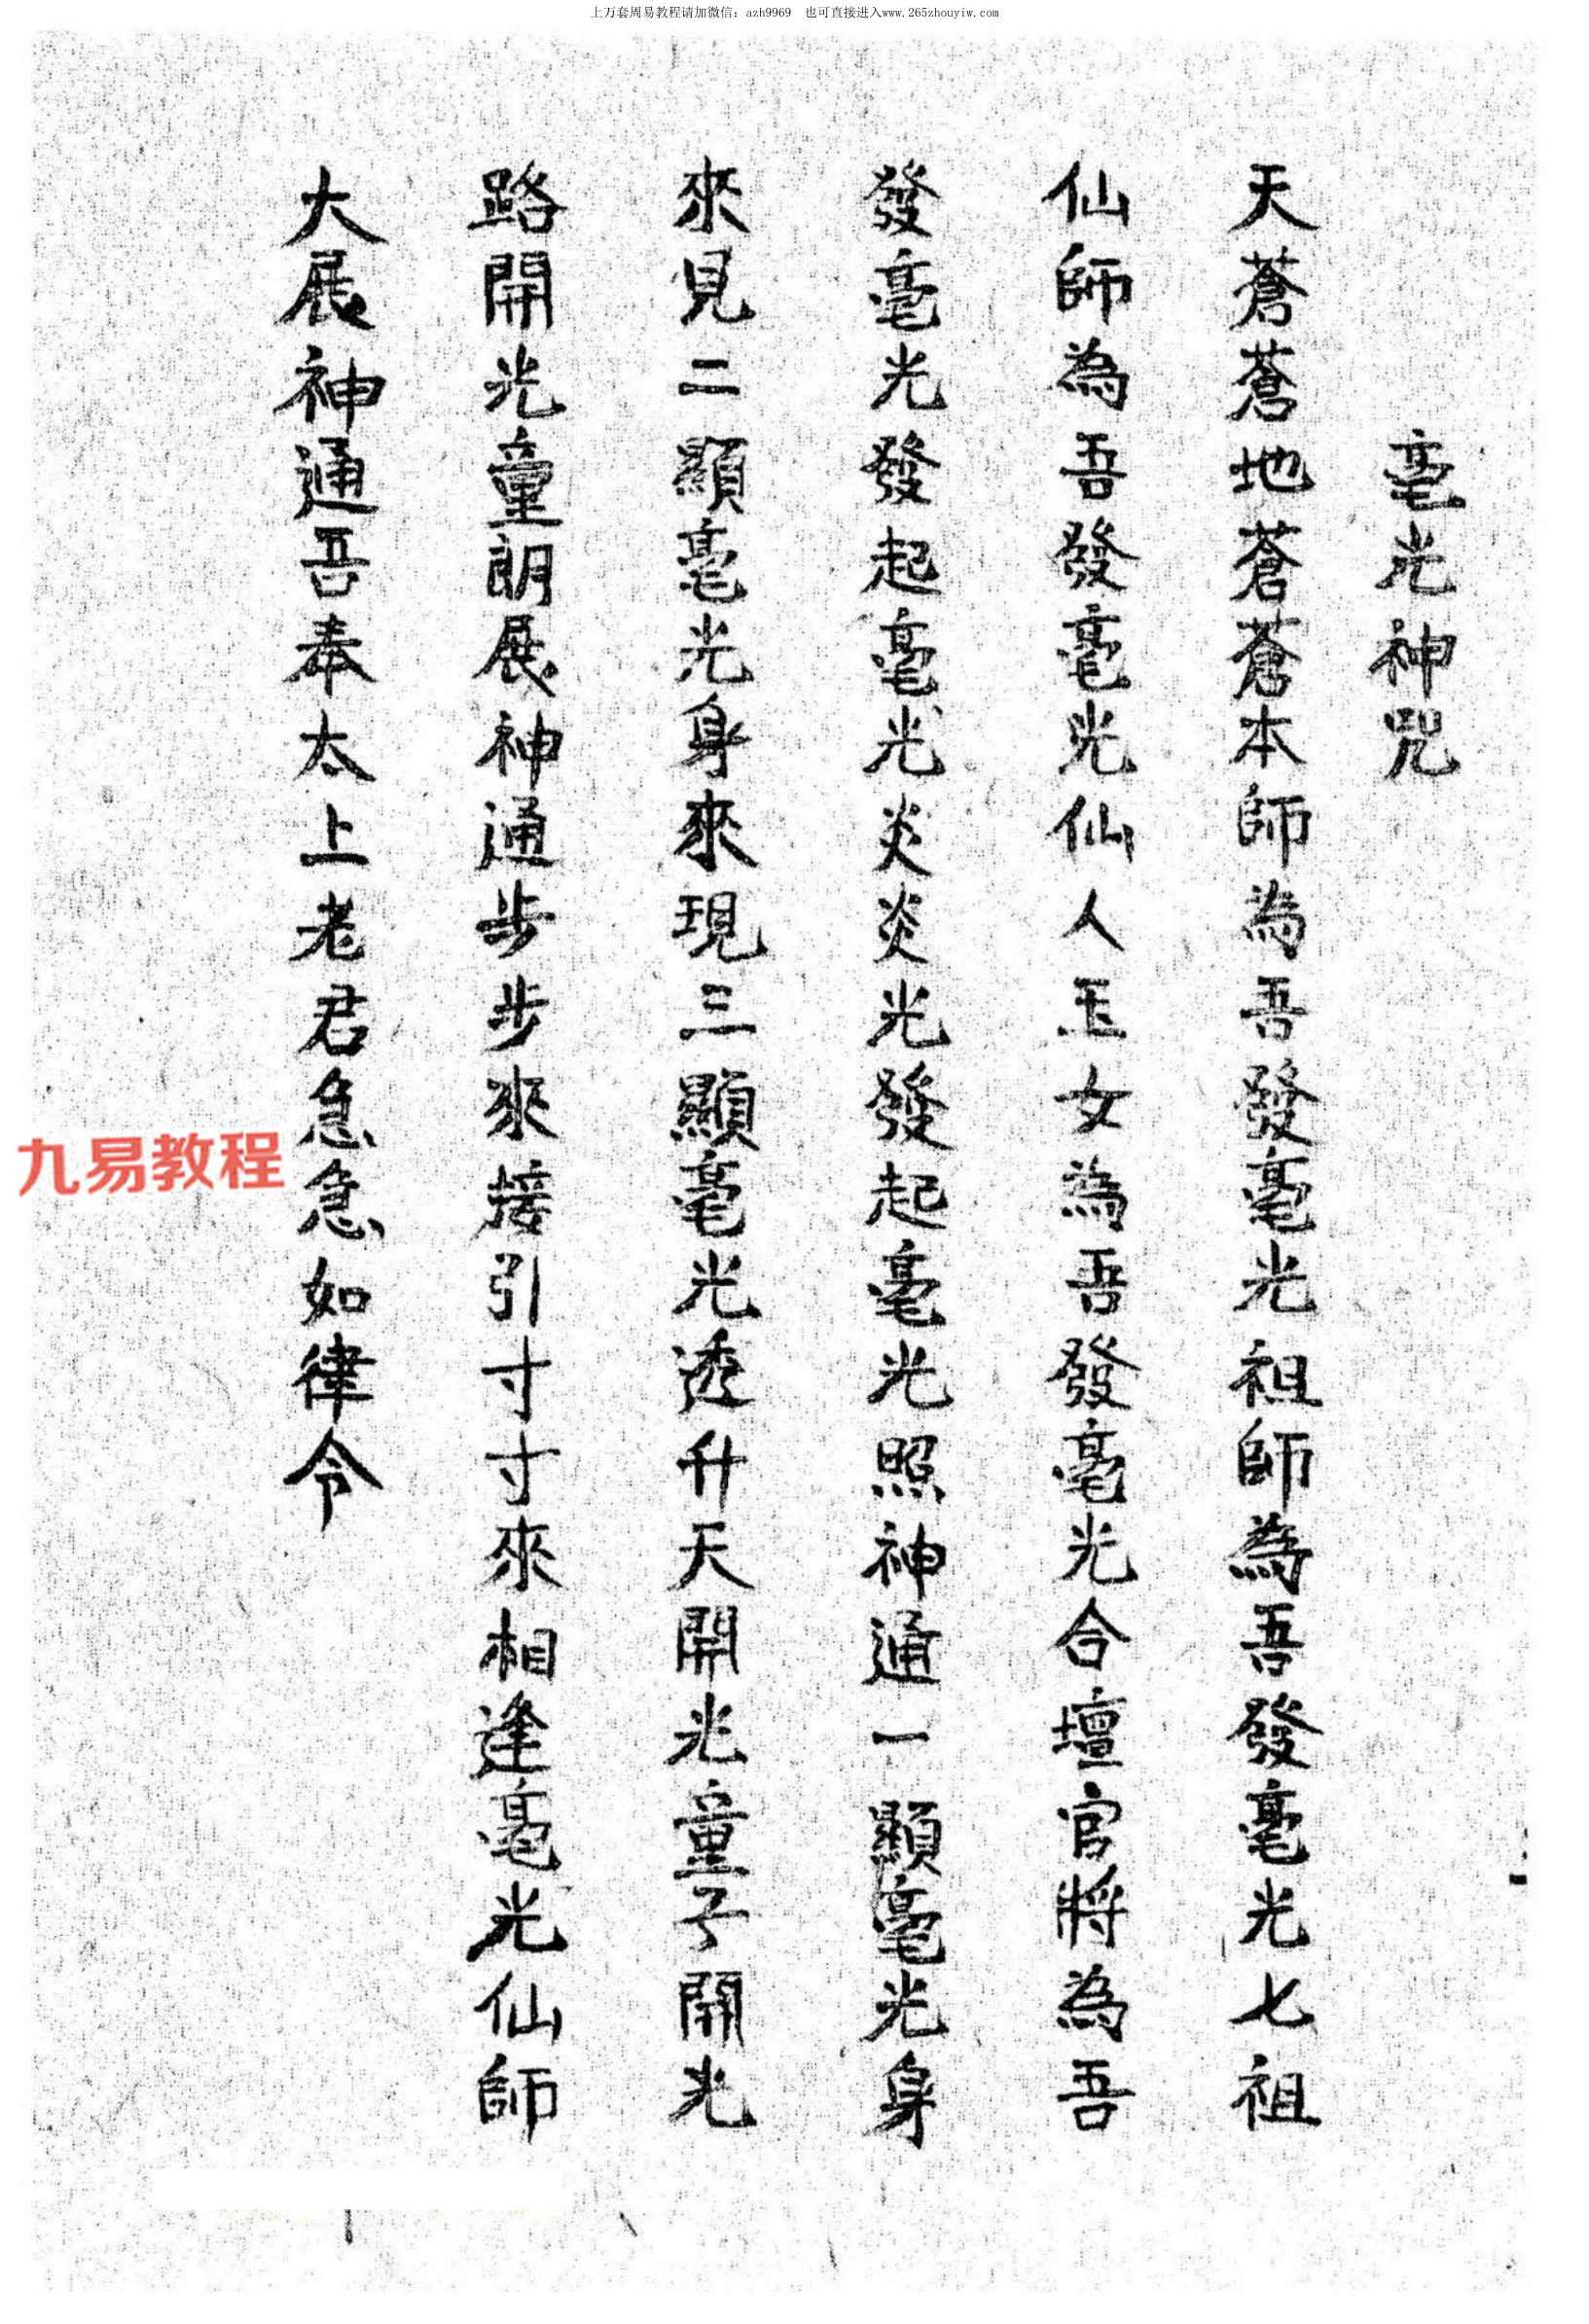 上万套周易教程请加微信：azh9969 也可直接进入www.265zhouyiw.com
毫光神咒
天蒼蒼地蒼蒼本師為吾發毫光祖師為吾發毫光七祖
仙師為吾發毫光仙人玉女為吾發毫光合壇官將為吾
發毫光發起毫光炎炎光發起毫光照神通一顯毫光身
來見二顯毫光身來現三顯毫光透升天開光童子開光
路開光童朗展神通步步來接引寸寸來相逢毫光仙師
大展神通吾奉太上老君急急如律令
九易教程